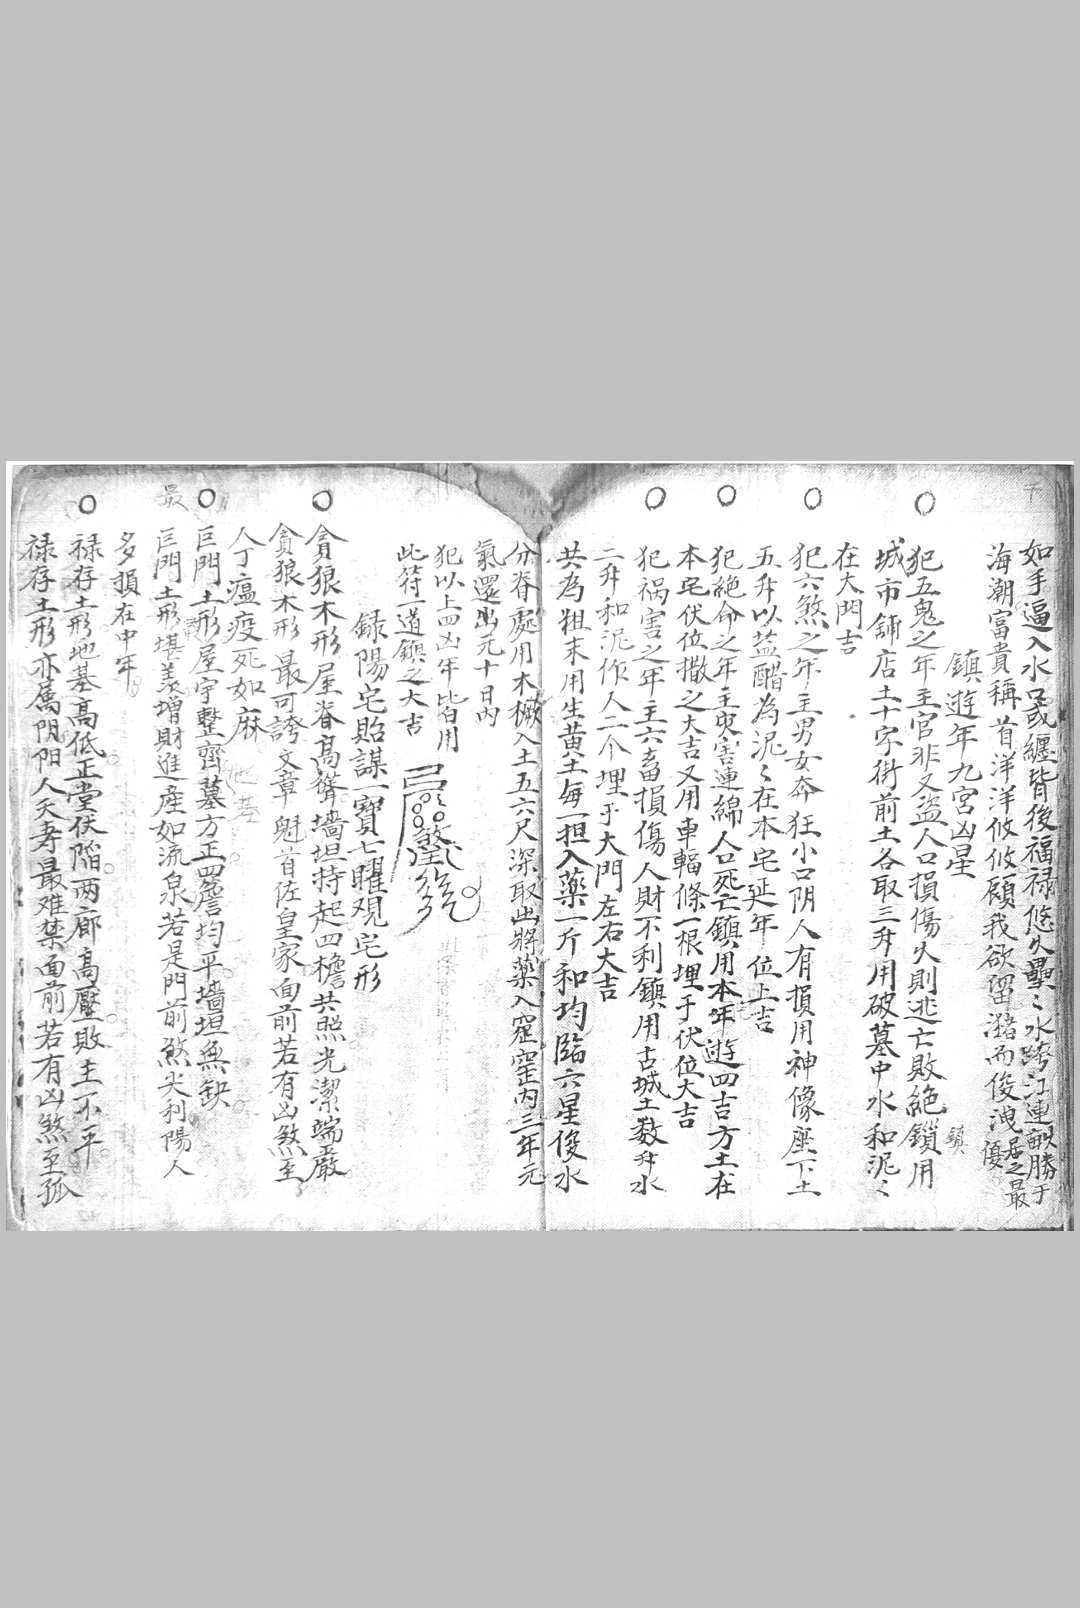 如手逼入水口或纏皆後福禄悠久疊〻水跨江連 勝于
海潮富貴稱首洋洋攸攸顧我欲留瀦而後洩居之最優
鎮遊年九宮凶星
鎮
犯五鬼之年主官非又盗人口損傷久則逃亡敗絶鎖用
城市舖店土十字街前土各取三升用破墓中水和泥〻
在大門吉
犯六煞之年主男女奔狂小口阴人有損用神像座下土
五升以盐醋為泥〻在本宅延年位上吉
犯絶命之年主灾害連綿人口死亡鎮用本年遊四吉方土在
本宅伏位撒之大吉又用車輻條一根埋于伏位大吉
犯祸害之年主六畜損傷人財不利鎮用古城土数升水
二升和泥作人二个埋于大門左右大吉
共為粗末用生黄土每一担入藥一斤和均臨六星俊水
分脊處用木橛入土五六尺深取出將藥入窟窪内三年元
氣還出元十日内
犯以上四凶年皆用
此符一道鎮之大吉
録陽宅貽謀一寶七曜观宅形
貪狼木形屋脊高聳墻垣持起四檐共照光潔端嚴
貪狼木形最可誇文章魁首佐皇家面前若有凶煞至
人丁瘟疫死如麻
巨門土形屋宇整齊墓方正四簷均平墻垣無缺
巨門土形堪羨增財進産如流泉若是門前煞尖利陽人
多損在中年
禄存土形地基高低正堂伏陷两廊高壓敗主不平
禄存土形亦属阴阳人夭寿最难禁面前若有凶煞至孤